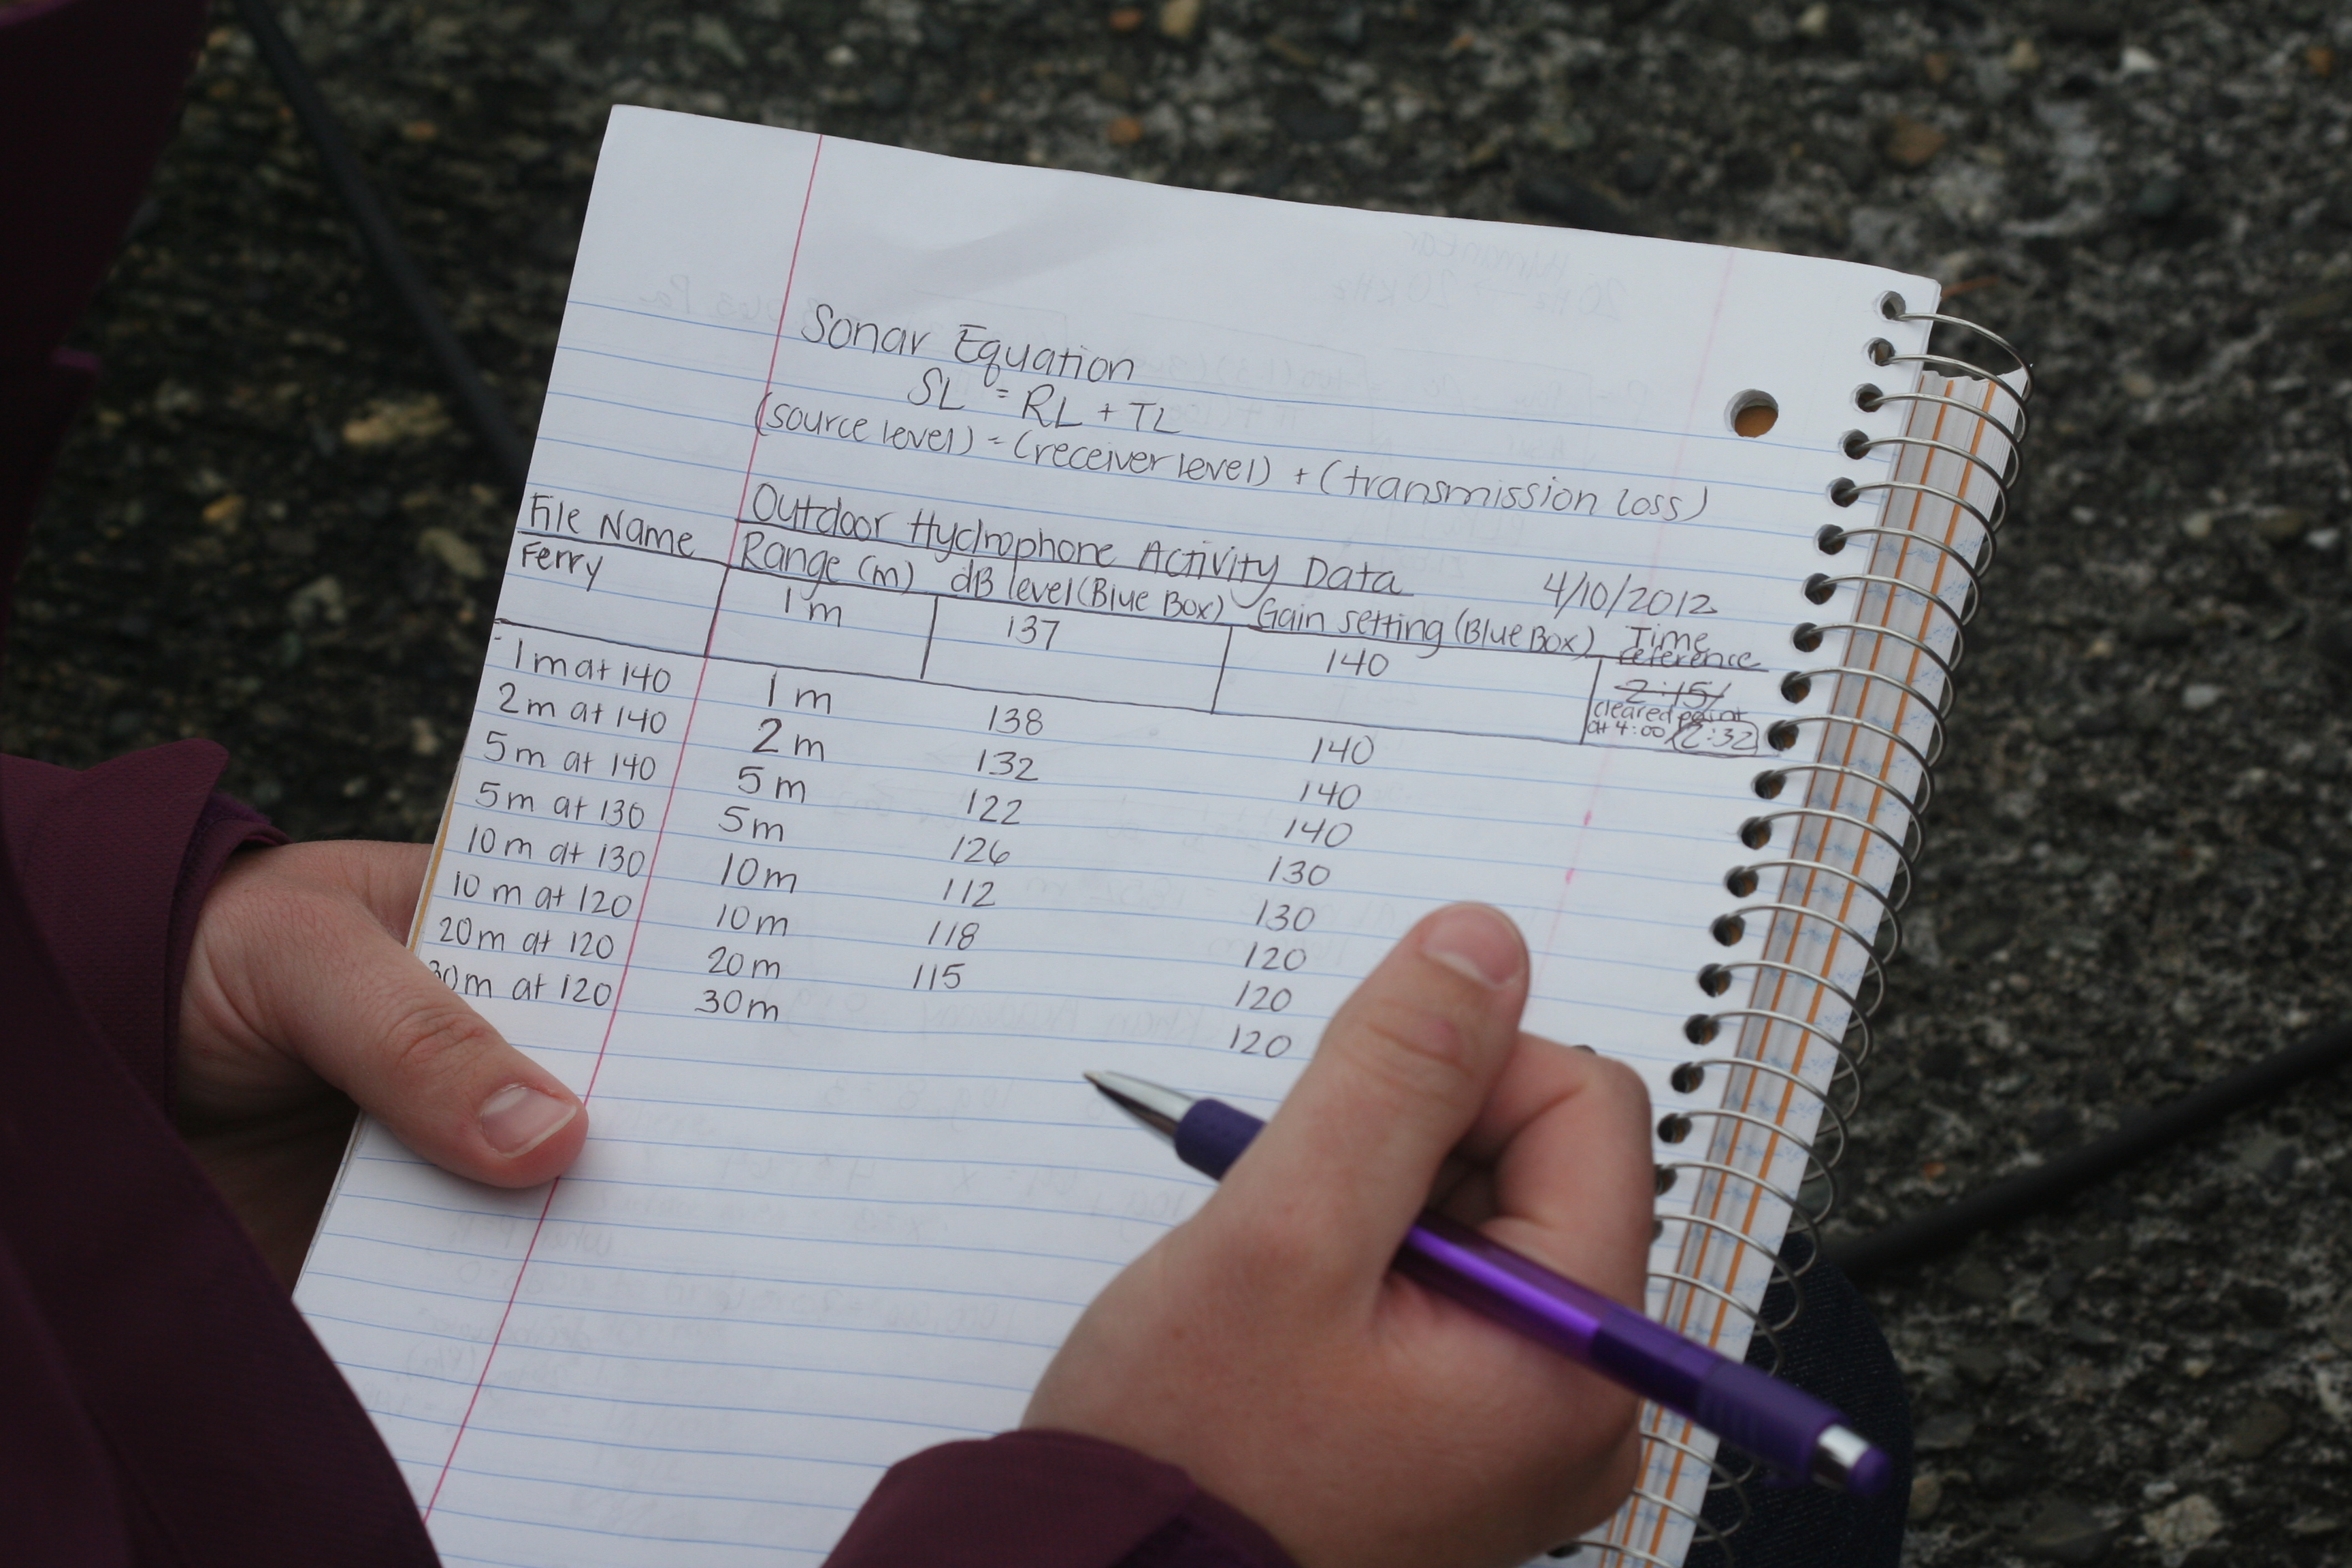 Sonar Equation
SL = RL + TL
(source level) = (receiver level) + (transmission loss)
Outdoor Hydrophone Activity Data 4/10/2012
File Name Range (m) dB level (Blue Box) Gain setting (Blue Box) Time reference
Ferry 1 m 137 140 2:15/ cleared point at 4:00 2:32
1 m at 140 1 m 138 140
2 m at 140 2 m 132 140
5 m at 140 5 m 122 140
5 m at 130 5 m 126 130
10 m at 130 10 m 112 130
10 m at 120 10 m 118 120
20 m at 120 20 m 115 120
30 m at 120 30 m 120